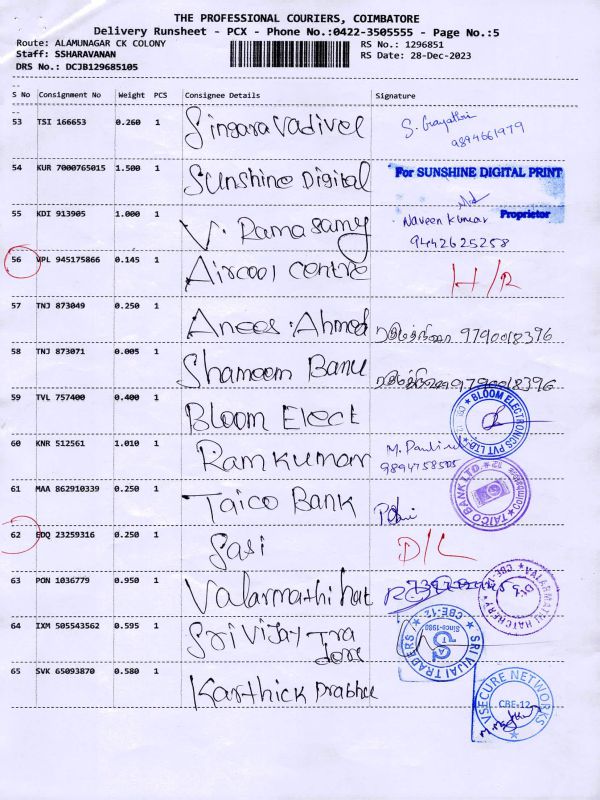 THE PROFESSIONAL COURIERS, COIMBATORE
Delivery Runsheet - PCX - Phone No.:0422-3505555 - Page No.:5
Route: ALAMUNAGAR CK COLONY
RS No.: 1296851
Staff: SSHARAVANAN
RS Date: 28-Dec-2023
DRS No.: DCJB129685105
S No Consignment No Weight PCS Consignee Details Signature
53 TSI 166653 0.260 1 Singara Vadivel S. Gayathri
9894661979
54 KUR 7000765015 1.500 1 Sunshine Digital For SUNSHINE DIGITAL PRINT
Proprietor
55 KDI 913905 1.000 1 V. Ramasamy Naveen Kumar
9442625258
56 VPL 945175866 0.145 1 Aircool centre H/R
57 TNJ 873049 0.250 1 Anees .Ahmed 9790018396
58 TNJ 873071 0.005 1 Shameem Banu 9790018396
59 TVL 757400 0.400 1 Bloom Elect BLOOM ELECTRONICS PVT LTD
60 KNR 512561 1.010 1 Ram kumar M.
9894758505
61 MAA 862910339 0.250 1 Taico Bank TAICO BANK LTD. Coimbatore 12
62 EDQ 23259316 0.250 1 Sasi D/L
63 PON 1036779 0.950 1 Valarmathi hat VALARMATHI HATCHERY CBE
64 IXM 505543562 0.595 1 Sri Vijay Tra
dors
SRI VIJAI TRADERS CBE-12 Since-1986
65 SVK 65093870 0.580 1 Karthick Prabhu VSECURE NETWORKS CBE-12